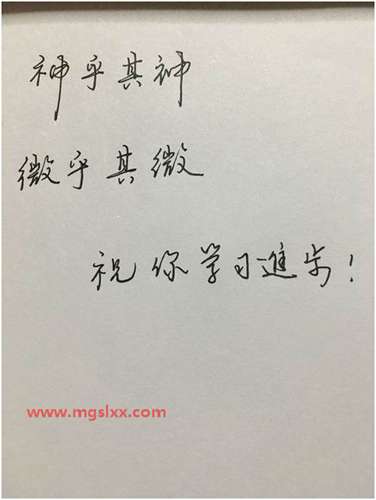 神乎其神
微乎其微
祝你学习進步！
www.mgslxx.com